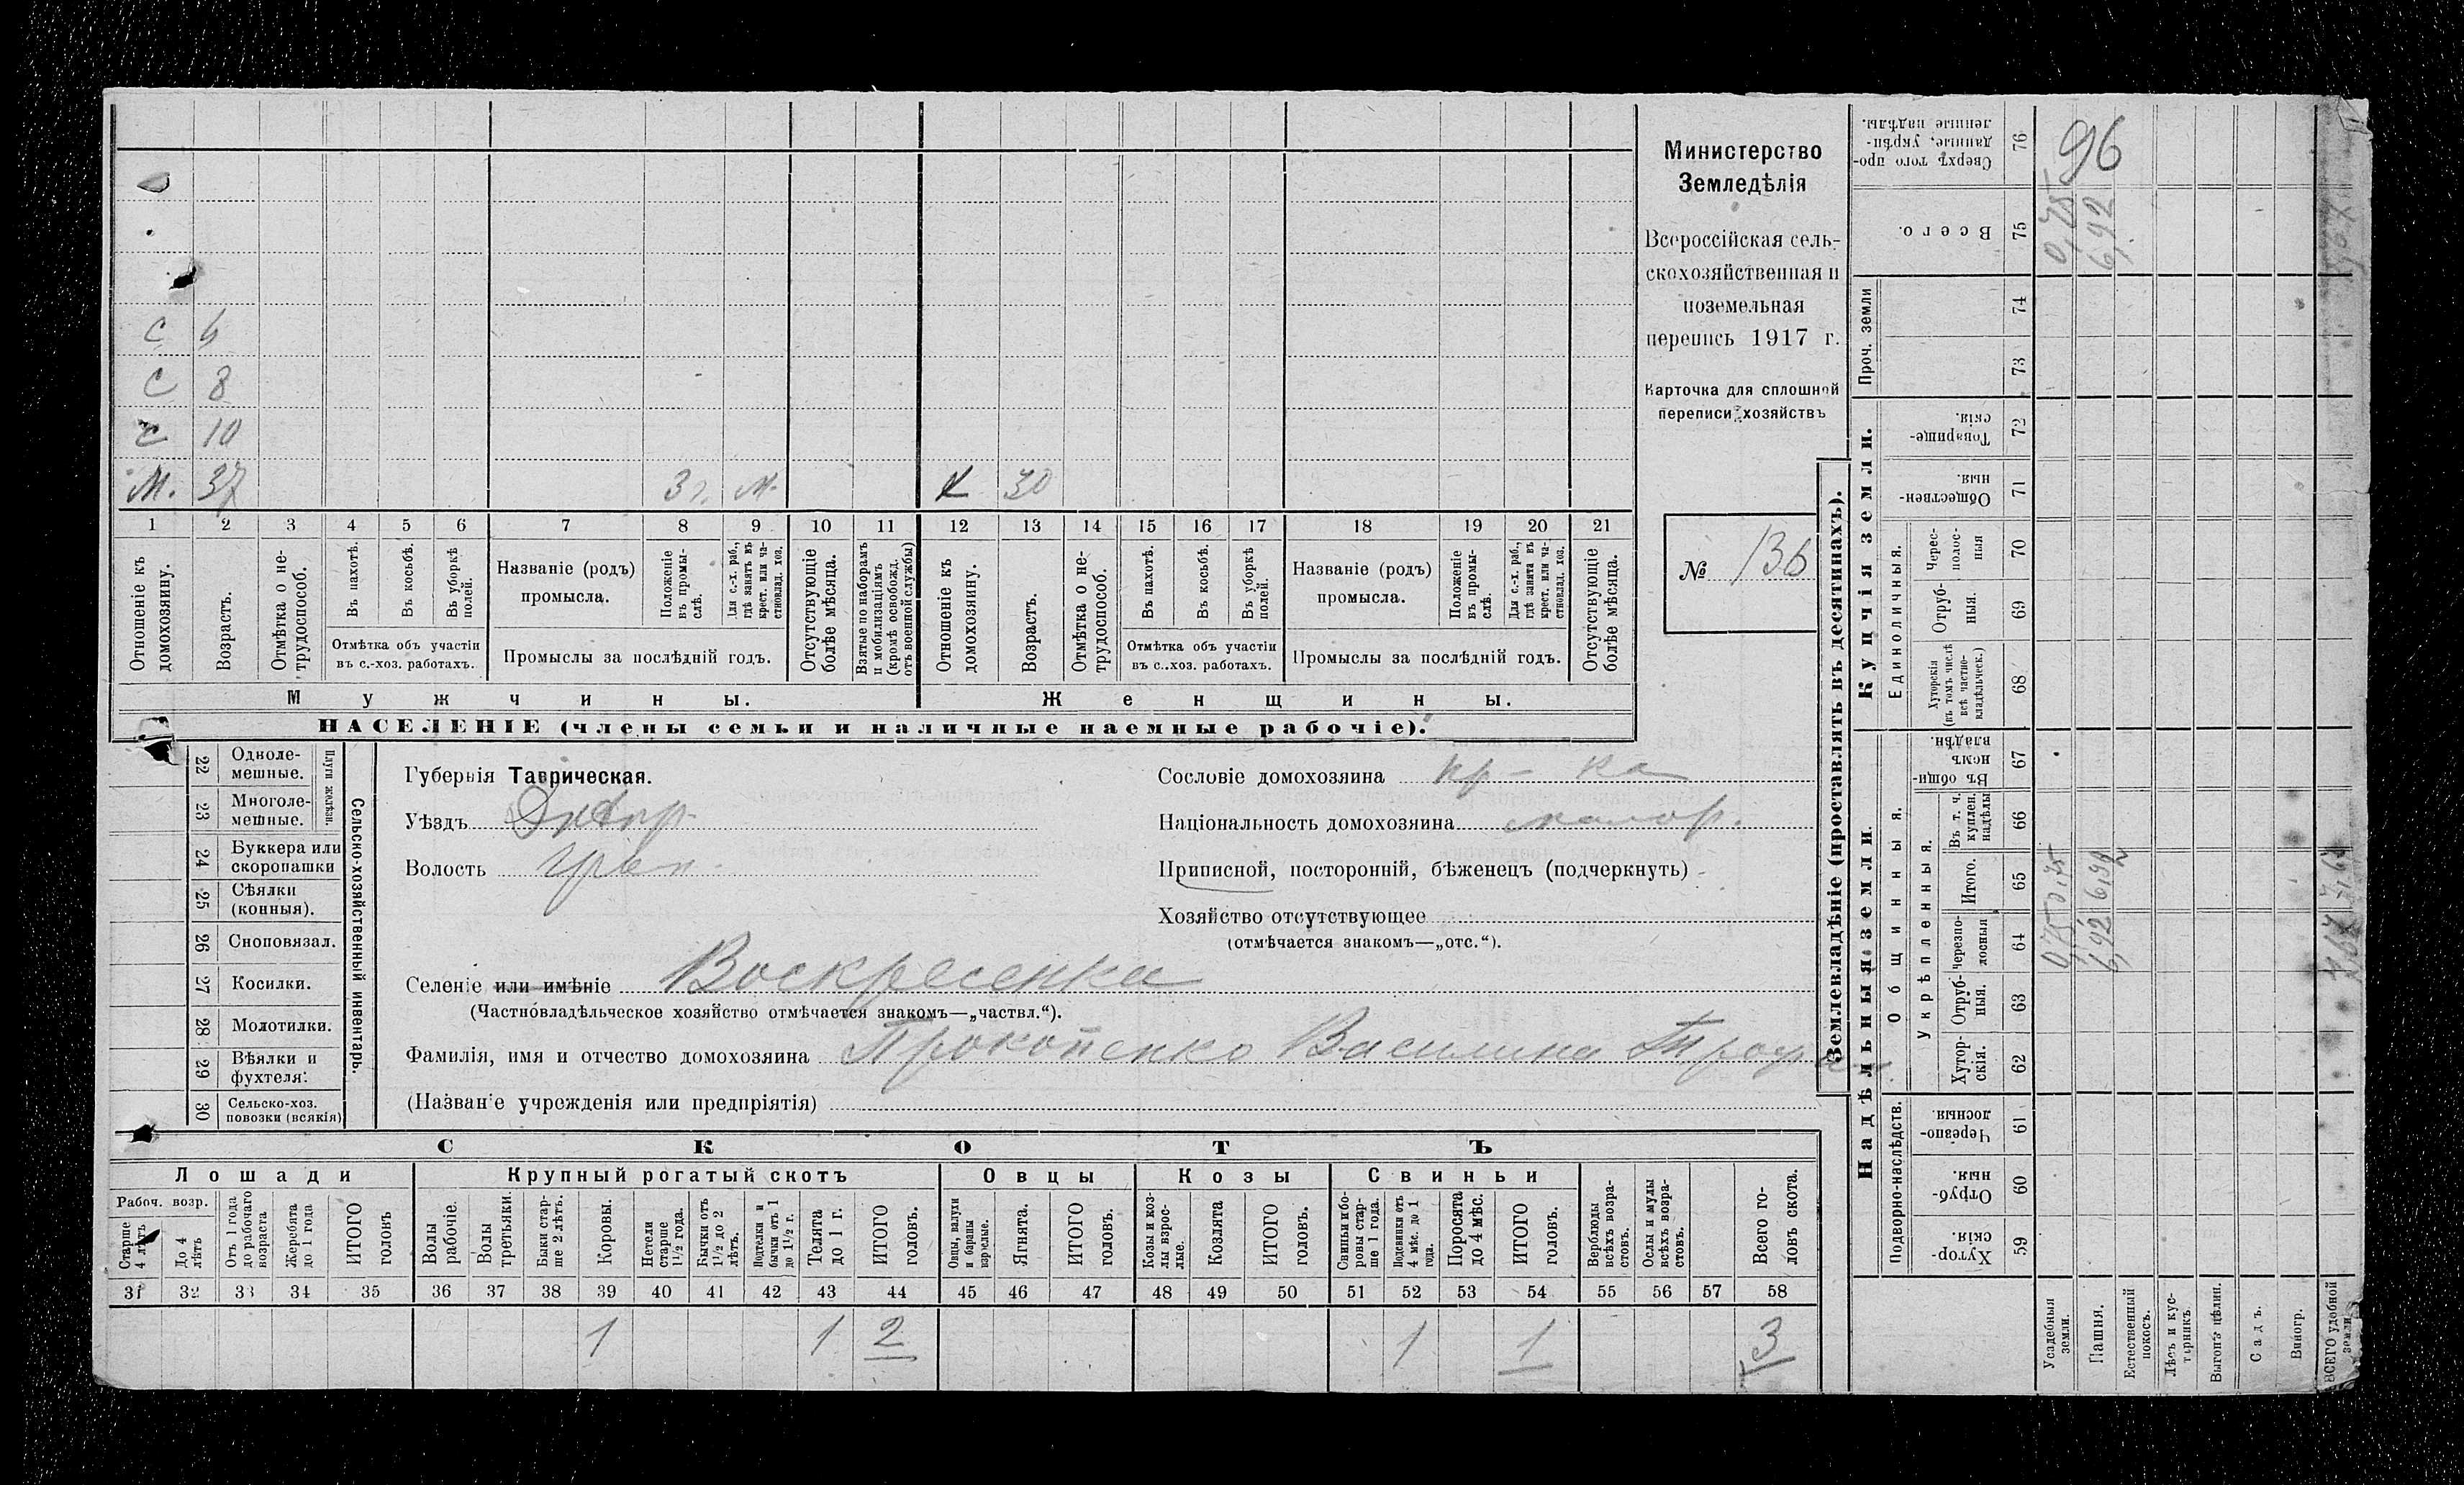 С 4
С 8
С 10
М. 37 3 М. 30
1 2 3 4 5 6 7 8 9 10 11 12 13 14 15 16 17 18 19 20 21
Отношеніе къ домохозяину.
Возрастъ.
Отмѣтка о не-
трудоспособ.
Въ пахотѣ.
Въ косьбѣ.
Въ уборкѣ полей.
Отмѣтка объ участіи
въ с.-хоз. работахъ.
Названіе (родъ)
промысла.
Положеніе въ промы-
слѣ.
Для с.-х. раб.,
гдѣ занятъ въ
крест. или ча-
стновлад. хоз.
Промыслы за послѣдній годъ.
Отсутствующіе
болѣе мѣсяца.
Взятые по наборамъ
и мобилизаціямъ
(кромѣ освобожд.
отъ военной службы)
Отношеніе къ
домохозяину.
Возрастъ.
Отмѣтка о не-
трудоспособ.
Въ пахотѣ.
Въ косьбѣ.
Въ уборкѣ
полей.
Отмѣтка объ участіи
въ с..хоз. работахъ.
Названіе (родъ)
промысла.
Положеніе
въ промы-
слѣ.
Для с.-х. раб.,
гдѣ занята въ
крест. или ча-
стновлад. хоз.
Промыслы за послѣдній годъ.
Отсутствующіе
болѣе мѣсяца.
Мужчины.
Женщины.
НАСЕЛЕНІЕ (члены семьи и наличные наемные рабочіе).
Министерство
Земледѣлія
Всероссійская сель-
скохозяйственная и
поземельная
перепись 1917 г.
Карточка для сплошной
переписи хозяйствъ
№ 136
22 Одноле-
мешные.
23 Многоле-
мешные.
Плуги желѣзн.
24 Буккера или
скоропашки
25 Сѣялки
(конныя).
26 Сноповязал.
27 Косилки.
28 Молотилки.
29 Вѣялки и
фухтеля.
30 Сельско-хоз.
повозки (всякія)
Сельско-хозяйственный инвентарь.
Губернія Таврическая.
Уѣздъ Днѣпр.
Волость
Сословіе домохозяина кр-ка
Національность домохозяина малор.
Приписной, посторонній, бѣженецъ (подчеркнуть)
Хозяйство отсутствующее
(отмѣчается знакомъ—„отс.“).
Селеніе или имѣніе Воскресенка
(Частновладѣльческое хозяйство отмѣчается знакомъ—„частвл.“).
Фамилія, имя и отчество домохозяина Прокопенко Василина
(Названіе учрежденія или предпріятія)
СКОТЪ
Лошади
Крупный рогатый скотъ
Овцы
Козы
Свиньи
Рабоч. возр.
Старше
4 лѣтъ
До 4
лѣтъ
Отъ 1 года
до рабочаго
возраста
Жеребята
до 1 года
ИТОГО
головъ
Волы
рабочіе.
Волы
третьяки.
Быки стар-
ше 2 лѣтъ.
Коровы.
Нетели
старше
1½ года.
Бычки отъ
1½ до 2
лѣтъ.
Подтелки и
бычки отъ 1
до 1½ г.
Телята
до 1 г.
ИТОГО
головъ.
Овцы, валухи
и бараны
взрослые.
Ягнята.
ИТОГО
головъ.
Козы и коз-
лы взрос-
лые.
Козлята
ИТОГО
головъ.
Свиньи и бо-
ровы стар-
ше 1 года.
Подсвинки отъ
4 мѣс. до 1
года.
Поросята
до 4 мѣс.
ИТОГО
головъ.
Верблюды
всѣхъ возра-
стовъ.
Ослы и мулы
всѣхъ возра-
стовъ.
Всего го-
ловъ скота.
31 32 33 34 35 36 37 38 39 40 41 42 43 44 45 46 47 48 49 50 51 52 53 54 55 56 57 58
1 1 2 1 1 3
Землевладѣніе (проставлять въ десятинахъ).
Надѣльныя земли.
Купчія земли.
Подворно-наслѣдств.
Общинныя.
Укрѣпленныя.
Единоличныя.
Проч. земли
Сверхъ того про-
данные, укрѣп-
ленные надѣлы.
76
96
Всего.
75
0,75
6,92
74
73
Товарище-
скія.
72
Обществен-
ныя.
71
Черес-
полос-
ныя
70
Отруб-
ныя.
69
Хуторскія
(въ томъ числѣ
всѣ частно-
владѣльческ.)
68
Въ общи-
номъ
владѣн.
67
Въ т. ч.
куплен.
надѣлы
66
Итого.
65
0,75
6,92
7,67
Черезпо-
лосныя
64
0,75
6,92
7,67
Отруб-
ныя.
63
Хутор-
скія.
62
Черезпо-
лосныя.
61
Отруб-
ныя.
60
Хутор-
скія.
59
Усадебныя
земли.
Пашня.
Естественный
покосъ.
Лѣсъ и кус-
тарникъ.
Выгонъ цѣлин.
Садъ.
Виногр.
ВСЕГО удобной
земли.